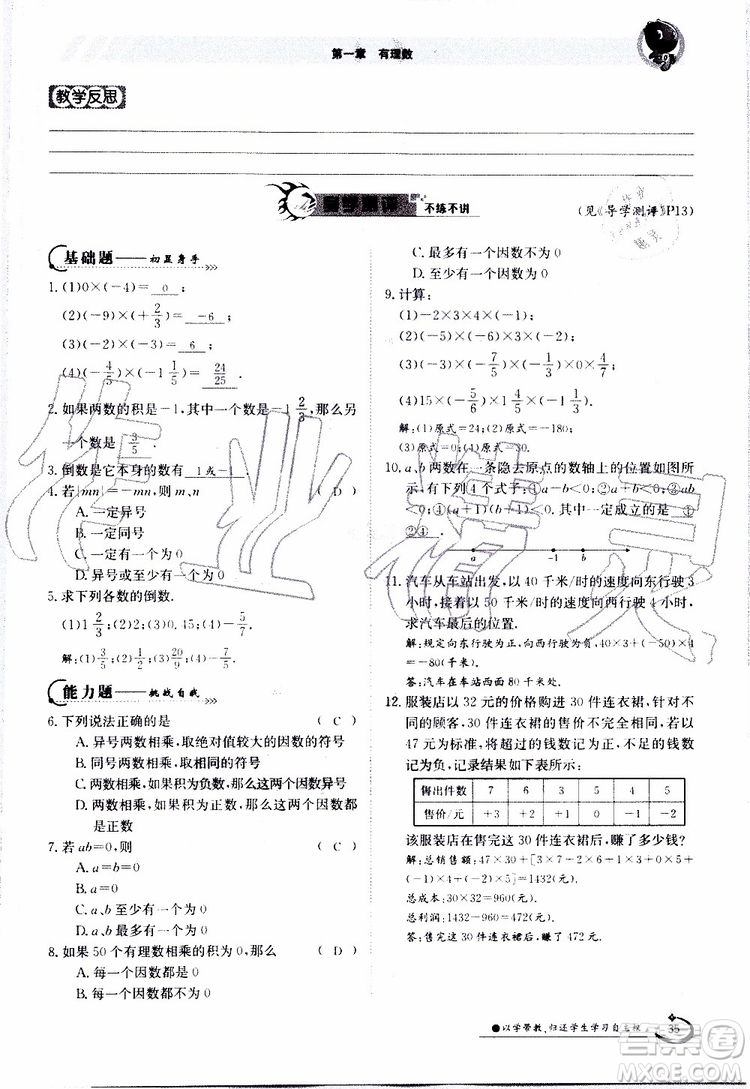 第一章 有理数
教学反思
导学测评 不练不讲
(见《导学测评》P13)
基础题——初显身手
1. (1)0×(-4)= 0 ;
(2)(-9)×(+2/3)= -6 ;
(3)(-2)×(-3)= 6 ;
(4)(-4/5)×(-1 1/5)= 24/25 .
2. 如果两数的积是-1,其中一个数是-1 2/3,那么另
一个数是 3/5 .
3. 倒数是它本身的数有 1或-1 .
4. 若|mn|=-mn,则m、n ( D )
A. 一定异号
B. 一定同号
C. 一定有一个为0
D. 异号或至少有一个为0
5. 求下列各数的倒数.
(1)1 2/3;(2)0.45;(3)-5/7.
解:(1)3/5;(2)20/9;(3)-7/5.
能力题——挑战自我
6. 下列说法正确的是 ( C )
A. 异号两数相乘,取绝对值较大的因数的符号
B. 同号两数相乘,取相同的符号
C. 两数相乘,如果积为负数,那么这两个因数异号
D. 两数相乘,如果积为正数,那么这两个因数都
是正数
7. 若ab=0,则 ( C )
A. a=b=0
B. a=0
C. a、b至少有一个为0
D. a、b最多有一个为0
8. 如果50个有理数相乘的积为0,那么 ( D )
A. 每一个因数都为0
B. 每一个因数都不为0
C. 最多有一个因数不为0
D. 至少有一个因数为0
9. 计算:
(1)-2×3×4×(-1);
(2)(-5)×(-6)×3×(-2);
(3)(-2)×(-7/5)×(-5/6)×0×(-4/7);
(4)15×(-5/6)×1 4/5×(-1 1/3).
解:(1)原式=24;(2)原式=-180;
(3)原式=0;(4)原式=30.
10. a、b两数在一条隐去原点的数轴上的位置如图所
示,有下列4个式子:①a-b<0;②a+b<0;③ab
<0;④(a+1)(b+1)<0.其中一定成立的是 ①
②④ .
a -1 b 0
11. 汽车从车站出发,以40千米/时的速度向东行驶3
小时,接着以50千米/时的速度向西行驶4小时,
求汽车最后的位置.
解:规定向东行驶为正,向西行驶为负,40×3+(-50)×4
=-80(千米).
答:汽车在车站西80千米处.
12. 服装店以32元的价格购进30件连衣裙,针对不
同的顾客,30件连衣裙的售价不完全相同,若以
47元为标准,将超过的钱数记为正,不足的钱数
记为负,记录结果如下表所示:
售出件数 7 6 3 5 4 5
售价/元 +3 +2 +1 0 -1 -2
该服装店在售完这30件连衣裙后,赚了多少钱?
解:总销售额:47×30+[3×7+2×6+1×3+0×5+
(-1)×4+(-2)×5]=1432(元).
总成本:30×32=960(元).
总利润:1432-960=472(元).
答:售完这30件连衣裙后,赚了472元.
●以学带教,归还学生学习自主权
35
作业精灵
答案圈